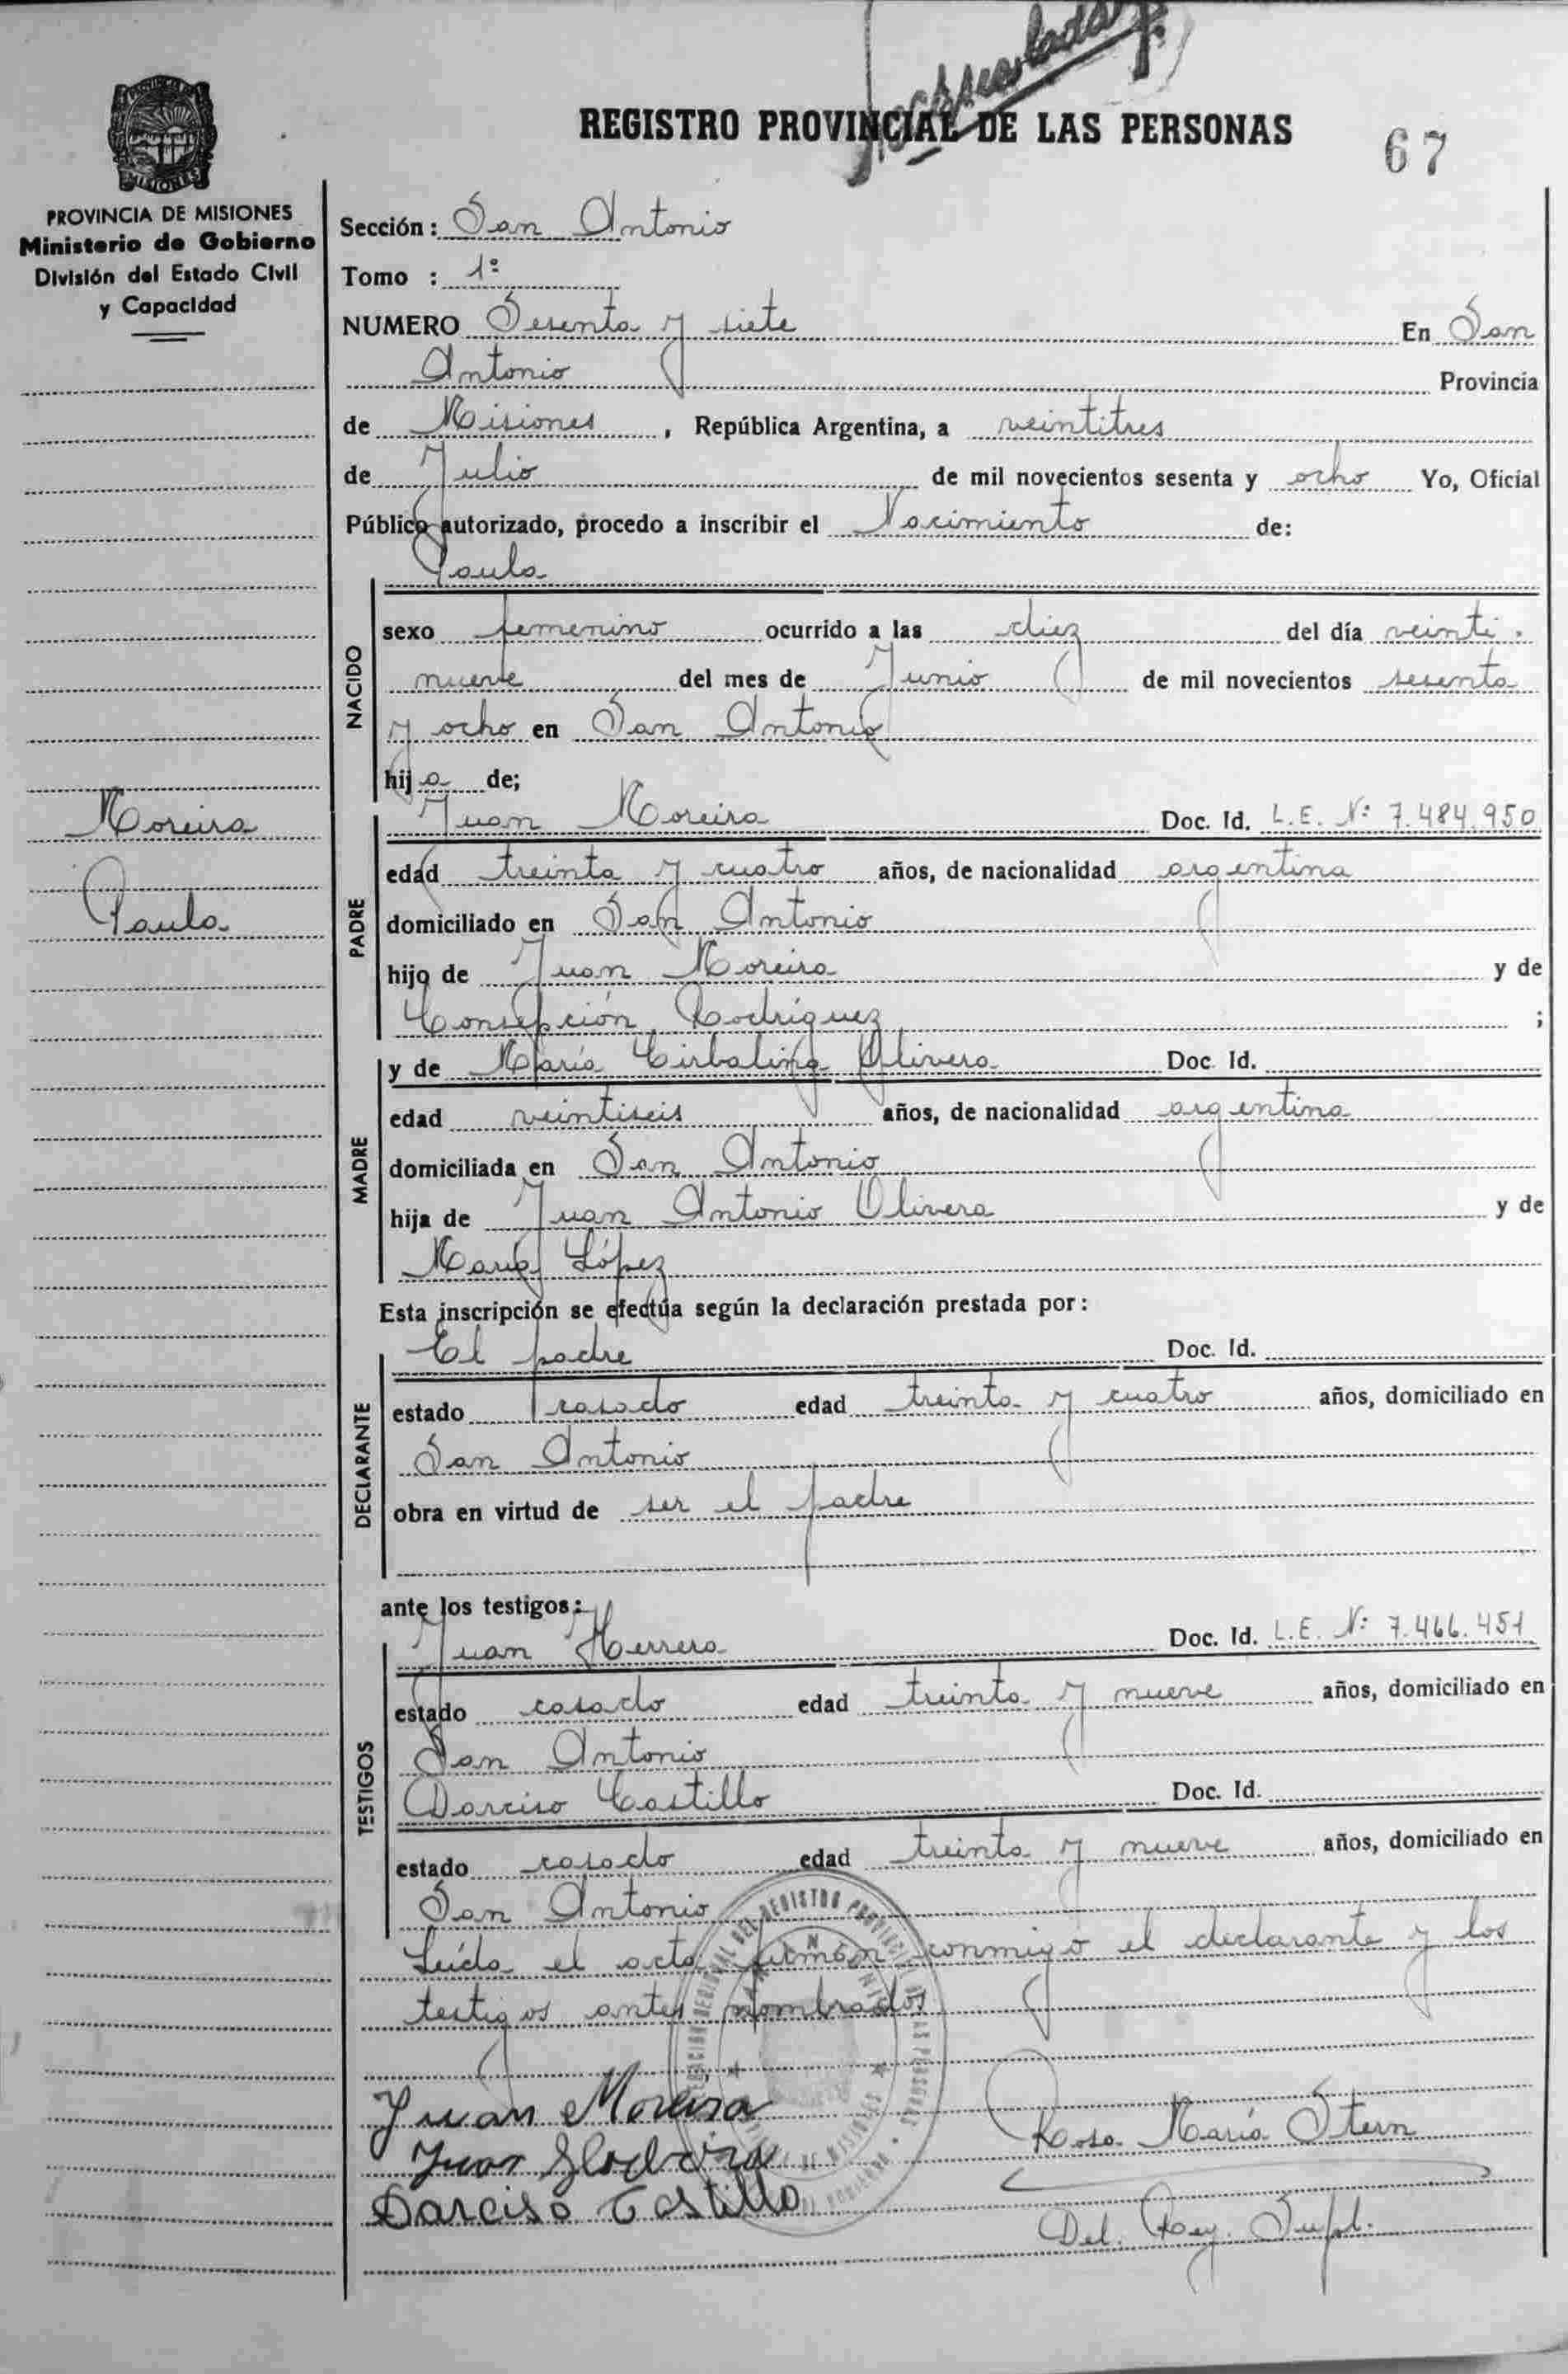 REGISTRO PROVINCIAL DE LAS PERSONAS
67
MISIONES
PROVINCIA DE MISIONES
Ministerio de Gobierno
División del Estado Civil
y Capacidad
Sección: San Antonio
Tomo : 1º
NUMERO Sesenta y siete En San
Antonio Provincia
de Misiones, República Argentina, a veintitres
de Julio de mil novecientos sesenta y ocho Yo, Oficial
Público autorizado, procedo a inscribir el Nacimiento de:
Paula
NACIDO
sexo femenino ocurrido a las diez del día veinti-
nueve del mes de Junio de mil novecientos sesenta
y ocho en San Antonio
hija de;
Moreira
Paula
PADRE
Juan Moreira Doc. Id. L.E. Nº 7.484.950
edad treinta y cuatro años, de nacionalidad argentina
domiciliado en San Antonio
hijo de Juan Moreira y de
Consepción Rodríguez ;
MADRE
y de María Olivera Doc. Id.
edad veintiseis años, de nacionalidad argentina
domiciliada en San Antonio
hija de Juan Antonio Olivera y de
María López
Esta inscripción se efectúa según la declaración prestada por:
DECLARANTE
El padre Doc. Id.
estado casado edad treinta y cuatro años, domiciliado en
San Antonio
obra en virtud de ser el padre
ante los testigos:
TESTIGOS
Juan Herrera Doc. Id. L.E. Nº 7.466.451
estado casado edad treinta y nueve años, domiciliado en
San Antonio
Darciso Castillo Doc. Id.
estado casado edad treinta y nueve años, domiciliado en
San Antonio
Leída el acta, firman conmigo el declarante y los
testigos antes nombrados
Juan Moreira
Juan
Darciso Castillo
Rosa María Stern
Del. Reg. Supl.